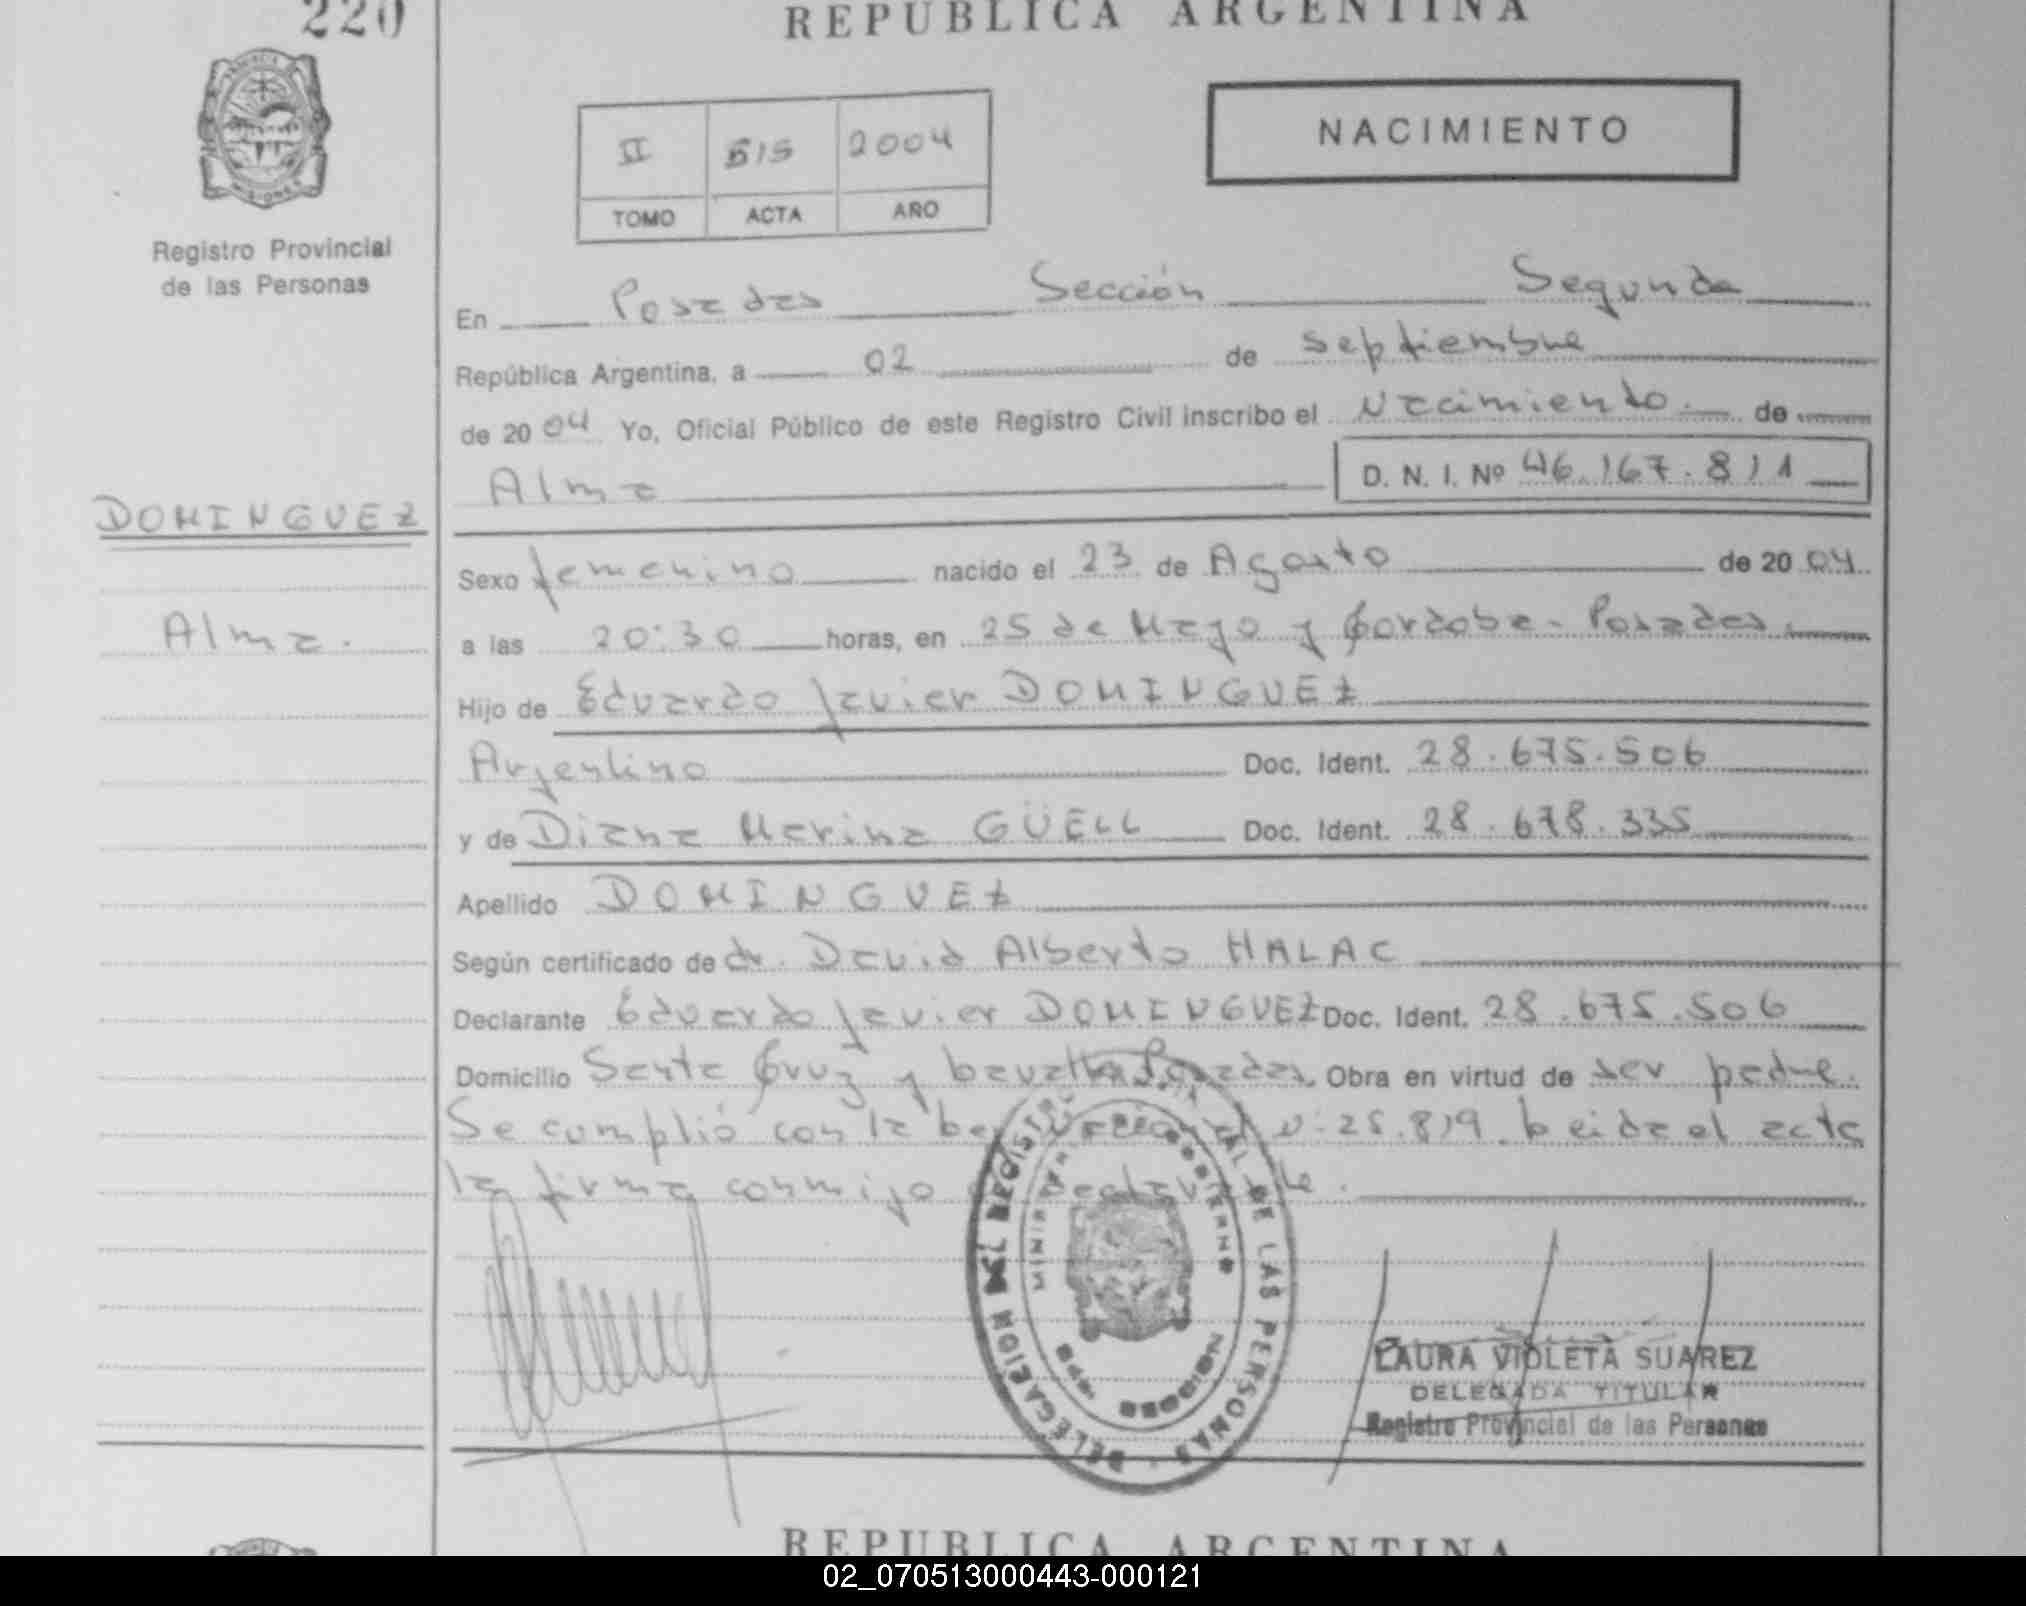 220
REPUBLICA ARGENTINA
Registro Provincial
de las Personas
II 515 2004
TOMO ACTA AÑO
NACIMIENTO
En Posadas Sección Segunda
República Argentina, a 02 de septiembre
de 2004 Yo, Oficial Público de este Registro Civil inscribo el Nacimiento. de
Alma D. N. I. Nº 46.167.811
DOMINGUEZ
Alma.
Sexo femenino nacido el 23 de Agosto de 2004
a las 20:30 horas, en 25 de Mayo y Cordoba - Posadas.
Hijo de Eduardo Javier DOMINGUEZ
Argentino Doc. Ident. 28.675.506
y de Diana Marina GÜELL Doc. Ident. 28.678.335
Apellido DOMINGUEZ
Según certificado de dr. David Alberto HALAC
Declarante Eduardo Javier DOMINGUEZ Doc. Ident. 28.675.506
Domicilio Santa Cruz y Posadas. Obra en virtud de ser padre.
Se cumplió con la Ley Nacional Nº 25.819. Leida el acta
la firma conmigo el declarante.
DELEGACION DEL REGISTRO PROVINCIAL DE LAS PERSONAS
MINISTERIO DE GOBIERNO
MISIONES
LAURA VIOLETA SUAREZ
DELEGADA TITULAR
Registro Provincial de las Personas
REPUBLICA ARGENTINA
02_070513000443-000121